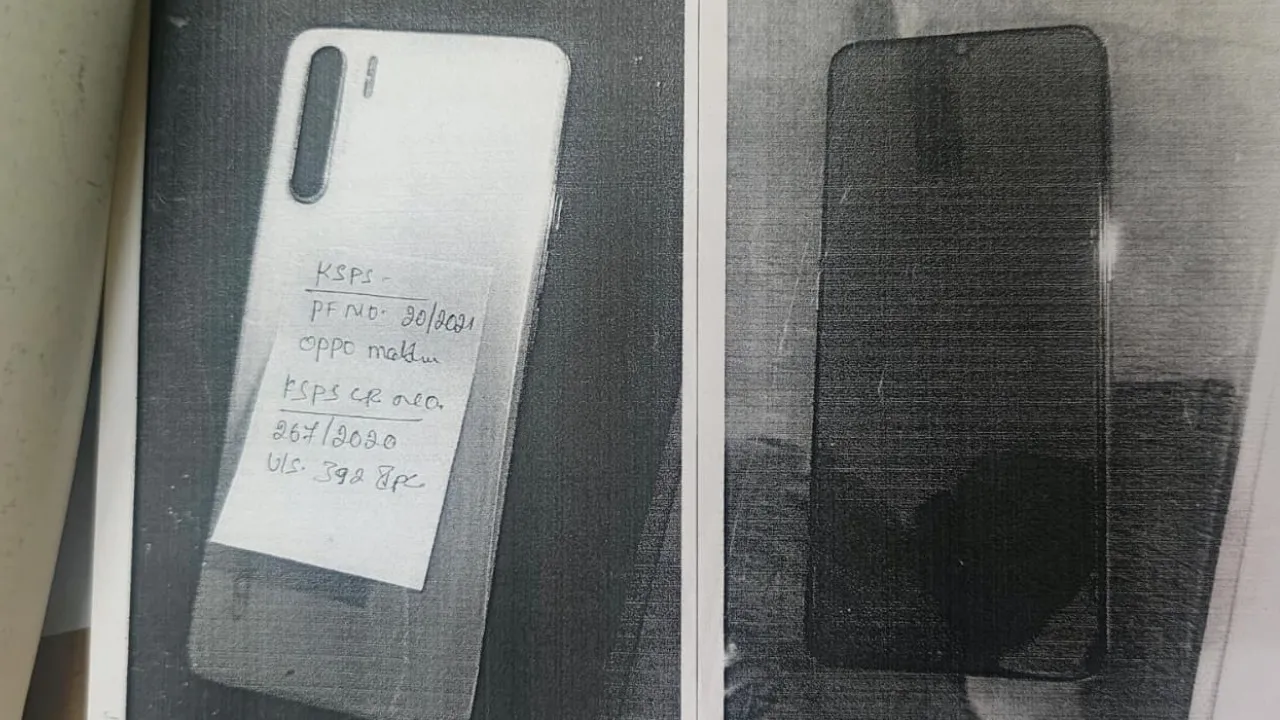 KSPS-
PF NO. 20/2021
OPPO
KSPS CR
267/2020
U/S. 392 Ipc